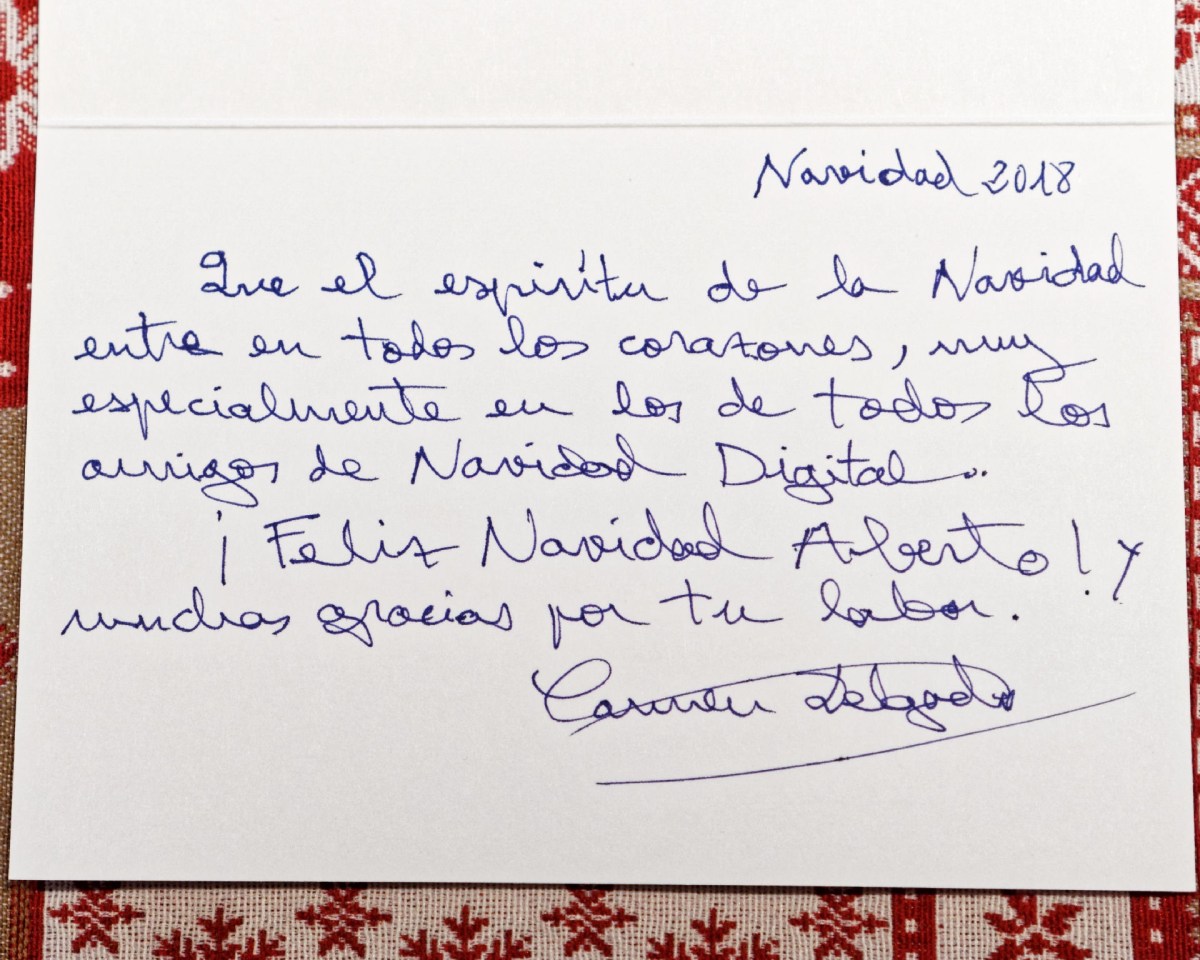 Navidad 2018
Que el espíritu de la Navidad
entre en todos los corazones, muy
especialmente en los de todos los
amigos de Navidad Digital..
¡Feliz Navidad Alberto! y
muchas gracias por tu labor.
Carmen Delgado